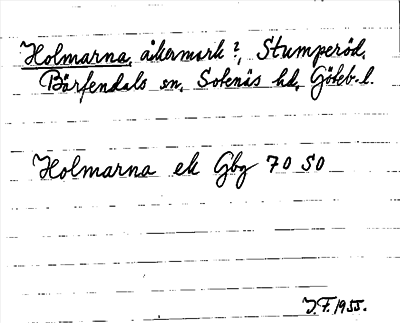 Holmarna, åkermark?, Stumperöd,
Bärfendals sn, Sotenäs hd, Göteb. l.
Holmarna ek Gbg 70 50
J.F. 1955.